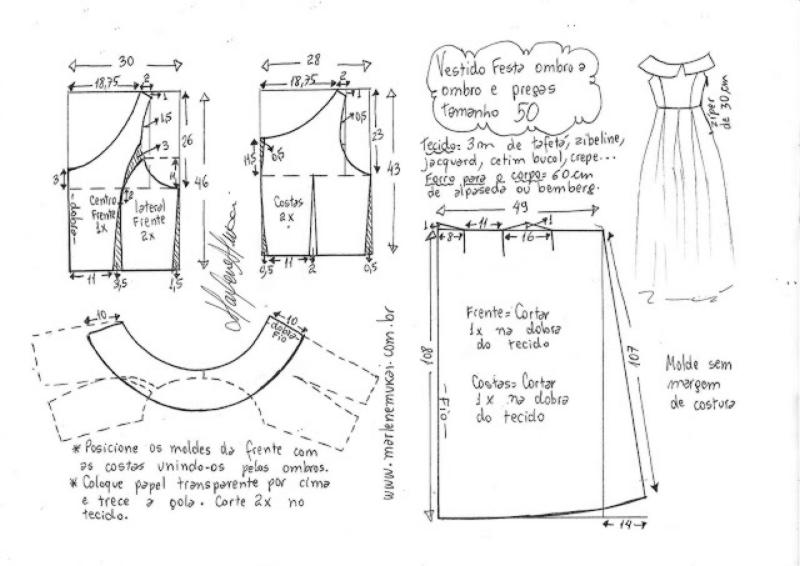 30
18,75
2
1
1,5
3
26
46
3
11
2
Centro
Frente
1x
lateral
Frente
2x
-dobra-
11
3,5
1,5
28
18,75
2
1
0,5
23
43
0,5
Costas
2x
0,5
11
2
0,5
Marlene Mukai
Vestido Festa ombro a
ombro e pregas
tamanho 50
Tecido: 3m de tafetá, zibeline,
jacquard, cetim bucol, crepe...
Forro para o corpo = 60 cm
de alpaseda ou bemberg.
zíper
de 30 cm
49
1
11
1
8
16
108
107
Frente = Cortar
1x na dobra
do tecido
Costas = Cortar
1x na dobra
do tecido
-Fio-
14
Molde sem
margem
de costura
10
10
dobra-
Fio
www.marlenemukai.com.br
* Posicione os moldes da frente com
as costas unindo-os pelos ombros.
* Coloque papel transparente por cima
e trece a gola. Corte 2x no
tecido.